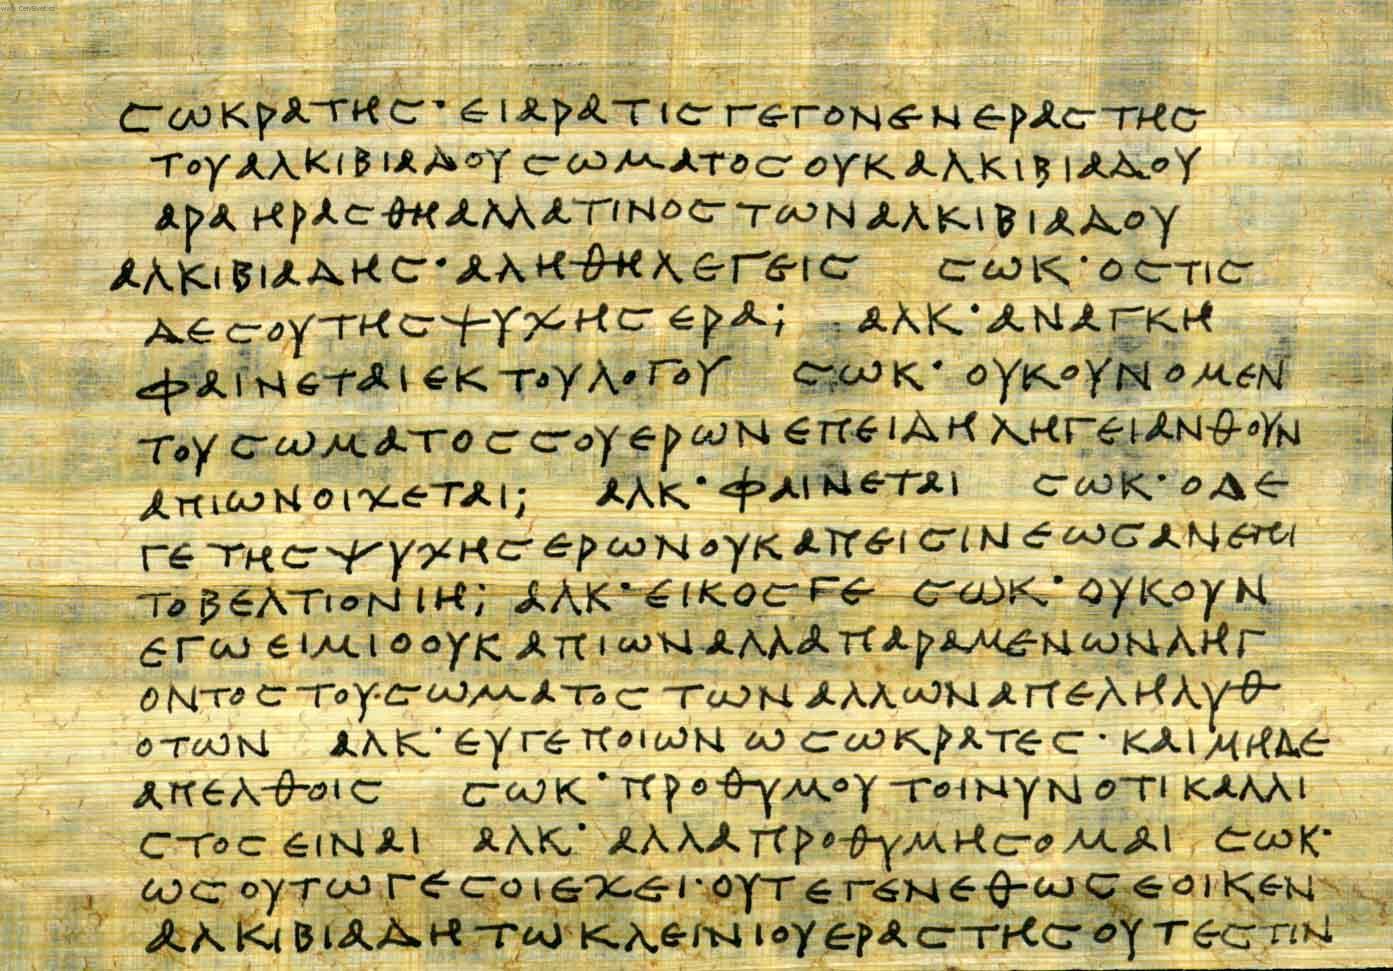 ϹωΚΡΑΤΗϹ· ΕΙ ΑΡΑ ΤΙϹ ΓΕΓΟΝΕΝ ΕΡΑϹΤΗϹ
ΤΟΥ ΑΛΚΙΒΙΑΔΟΥ ϹωΜΑΤΟϹ ΟΥΚ ΑΛΚΙΒΙΑΔΟΥ
ΑΡΑ ΗΡΑϹΘΗ ΑΛΛΑ ΤΙΝΟϹ ΤωΝ ΑΛΚΙΒΙΑΔΟΥ
ΑΛΚΙΒΙΑΔΗϹ· ΑΛΗΘΗ ΛΕΓΕΙϹ ϹωΚ· ΟϹΤΙϹ
ΔΕ ϹΟΥ ΤΗϹ ΨΥΧΗϹ ΕΡΑ; ΑΛΚ· ΑΝΑΓΚΗ
ΦΑΙΝΕΤΑΙ ΕΚ ΤΟΥ ΛΟΓΟΥ ϹωΚ· ΟΥΚΟΥΝ Ο ΜΕΝ
ΤΟΥ ϹωΜΑΤΟϹ ϹΟΥ ΕΡωΝ ΕΠΕΙΔΗ ΛΗΓΕΙ ΑΝΘΟΥΝ
ΑΠΙωΝ ΟΙΧΕΤΑΙ; ΑΛΚ· ΦΑΙΝΕΤΑΙ ϹωΚ· Ο ΔΕ
ΓΕ ΤΗϹ ΨΥΧΗϹ ΕΡωΝ ΟΥΚ ΑΠΕΙϹΙΝ ΕωϹ ΑΝ ΕΠΙ
ΤΟ ΒΕΛΤΙΟΝ ΙΗ; ΑΛΚ· ΕΙΚΟϹ ΓΕ ϹωΚ· ΟΥΚΟΥΝ
ΕΓω ΕΙΜΙ Ο ΟΥΚ ΑΠΙωΝ ΑΛΛΑ ΠΑΡΑΜΕΝωΝ ΛΗΓ
ΟΝΤΟϹ ΤΟΥ·ϹωΜΑΤΟϹ ΤωΝ ΑΛΛωΝ ΑΠΕΛΗΛΥΘ
ΟΤωΝ ΑΛΚ· ΕΥ ΓΕ ΠΟΙωΝ ω ϹωΚΡΑΤΕϹ· ΚΑΙ ΜΗΔΕ
ΑΠΕΛΘΟΙϹ ϹωΚ· ΠΡΟΘΥΜΟΥ ΤΟΙΝΥΝ ΟΤΙ ΚΑΛΛΙ
ϹΤΟϹ ΕΙΝΑΙ ΑΛΚ· ΑΛΛΑ ΠΡΟΘΥΜΗϹΟΜΑΙ ϹωΚ·
ωϹ ΟΥΤω ΓΕ ϹΟΙ ΕΧΕΙ· ΟΥΤ ΕΓΕΝΕΘ ωϹ ΕΟΙΚΕΝ
ΑΛΚΙΒΙΑΔΗ Τω ΚΛΕΙΝΙΟΥ ΕΡΑϹΤΗϹ ΟΥΤ ΕϹΤΙΝ